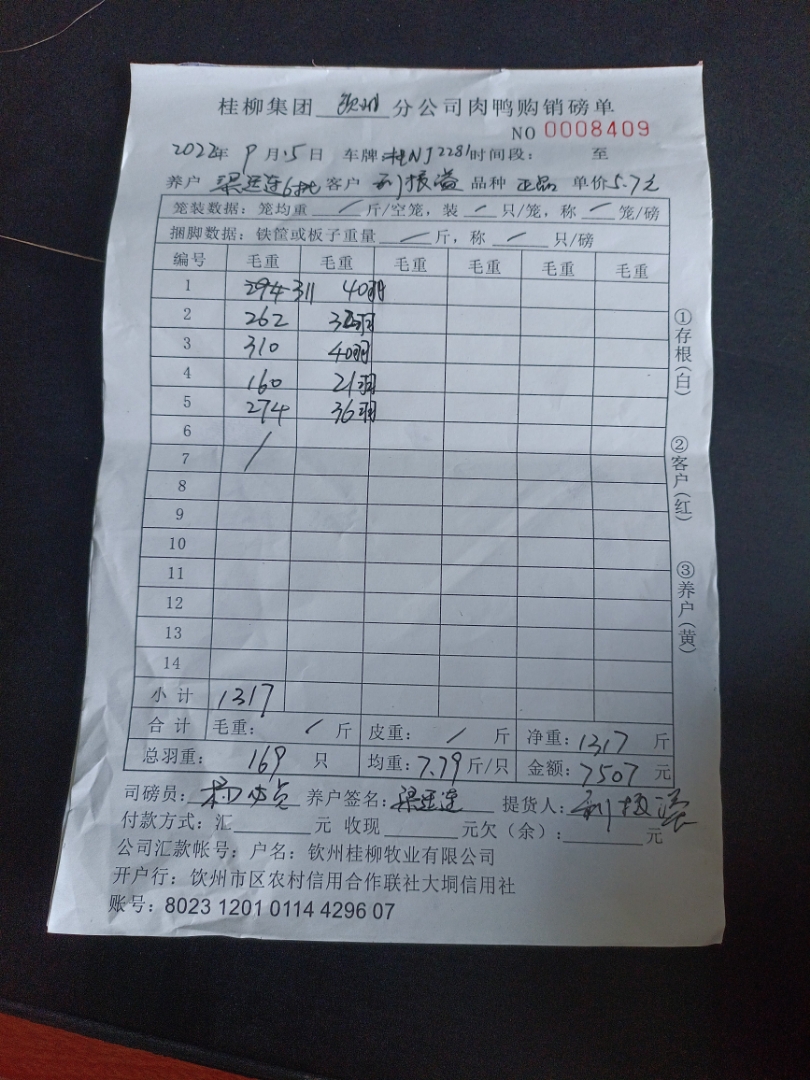 桂柳集团 钦州 分公司肉鸭购销磅单
NO 0008409
2022年 9月15日 车牌 桂NJ2281 时间段: 至
养户 梁廷连6批 客户 利振溢 品种 正品 单价5.7元
笼装数据:笼均重 / 斤/空笼,装 / 只/笼,称 / 笼/磅
捆脚数据:铁筐或板子重量 / 斤,称 / 只/磅
编号 毛重 毛重 毛重 毛重 毛重 毛重
1 294 311 40羽
2 262
3 310 40羽
4 160 21羽
5 274 36羽
6
7 /
8
9
10
11
12
13
14
小计 1317
合计 毛重: / 斤 皮重: / 斤 净重:1317 斤
总羽重: 169 只 均重:7.79斤/只 金额:7507元
司磅员: 养户签名:梁廷连 提货人:利振溢
付款方式:汇 元 收现 元欠(余): 元
公司汇款帐号;户名:钦州桂柳牧业有限公司
开户行:饮州市区农村信用合作联社大垌信用社
账号:8023 1201 0114 4296 07
①存根(白)
②客户(红)
③养户(黄)